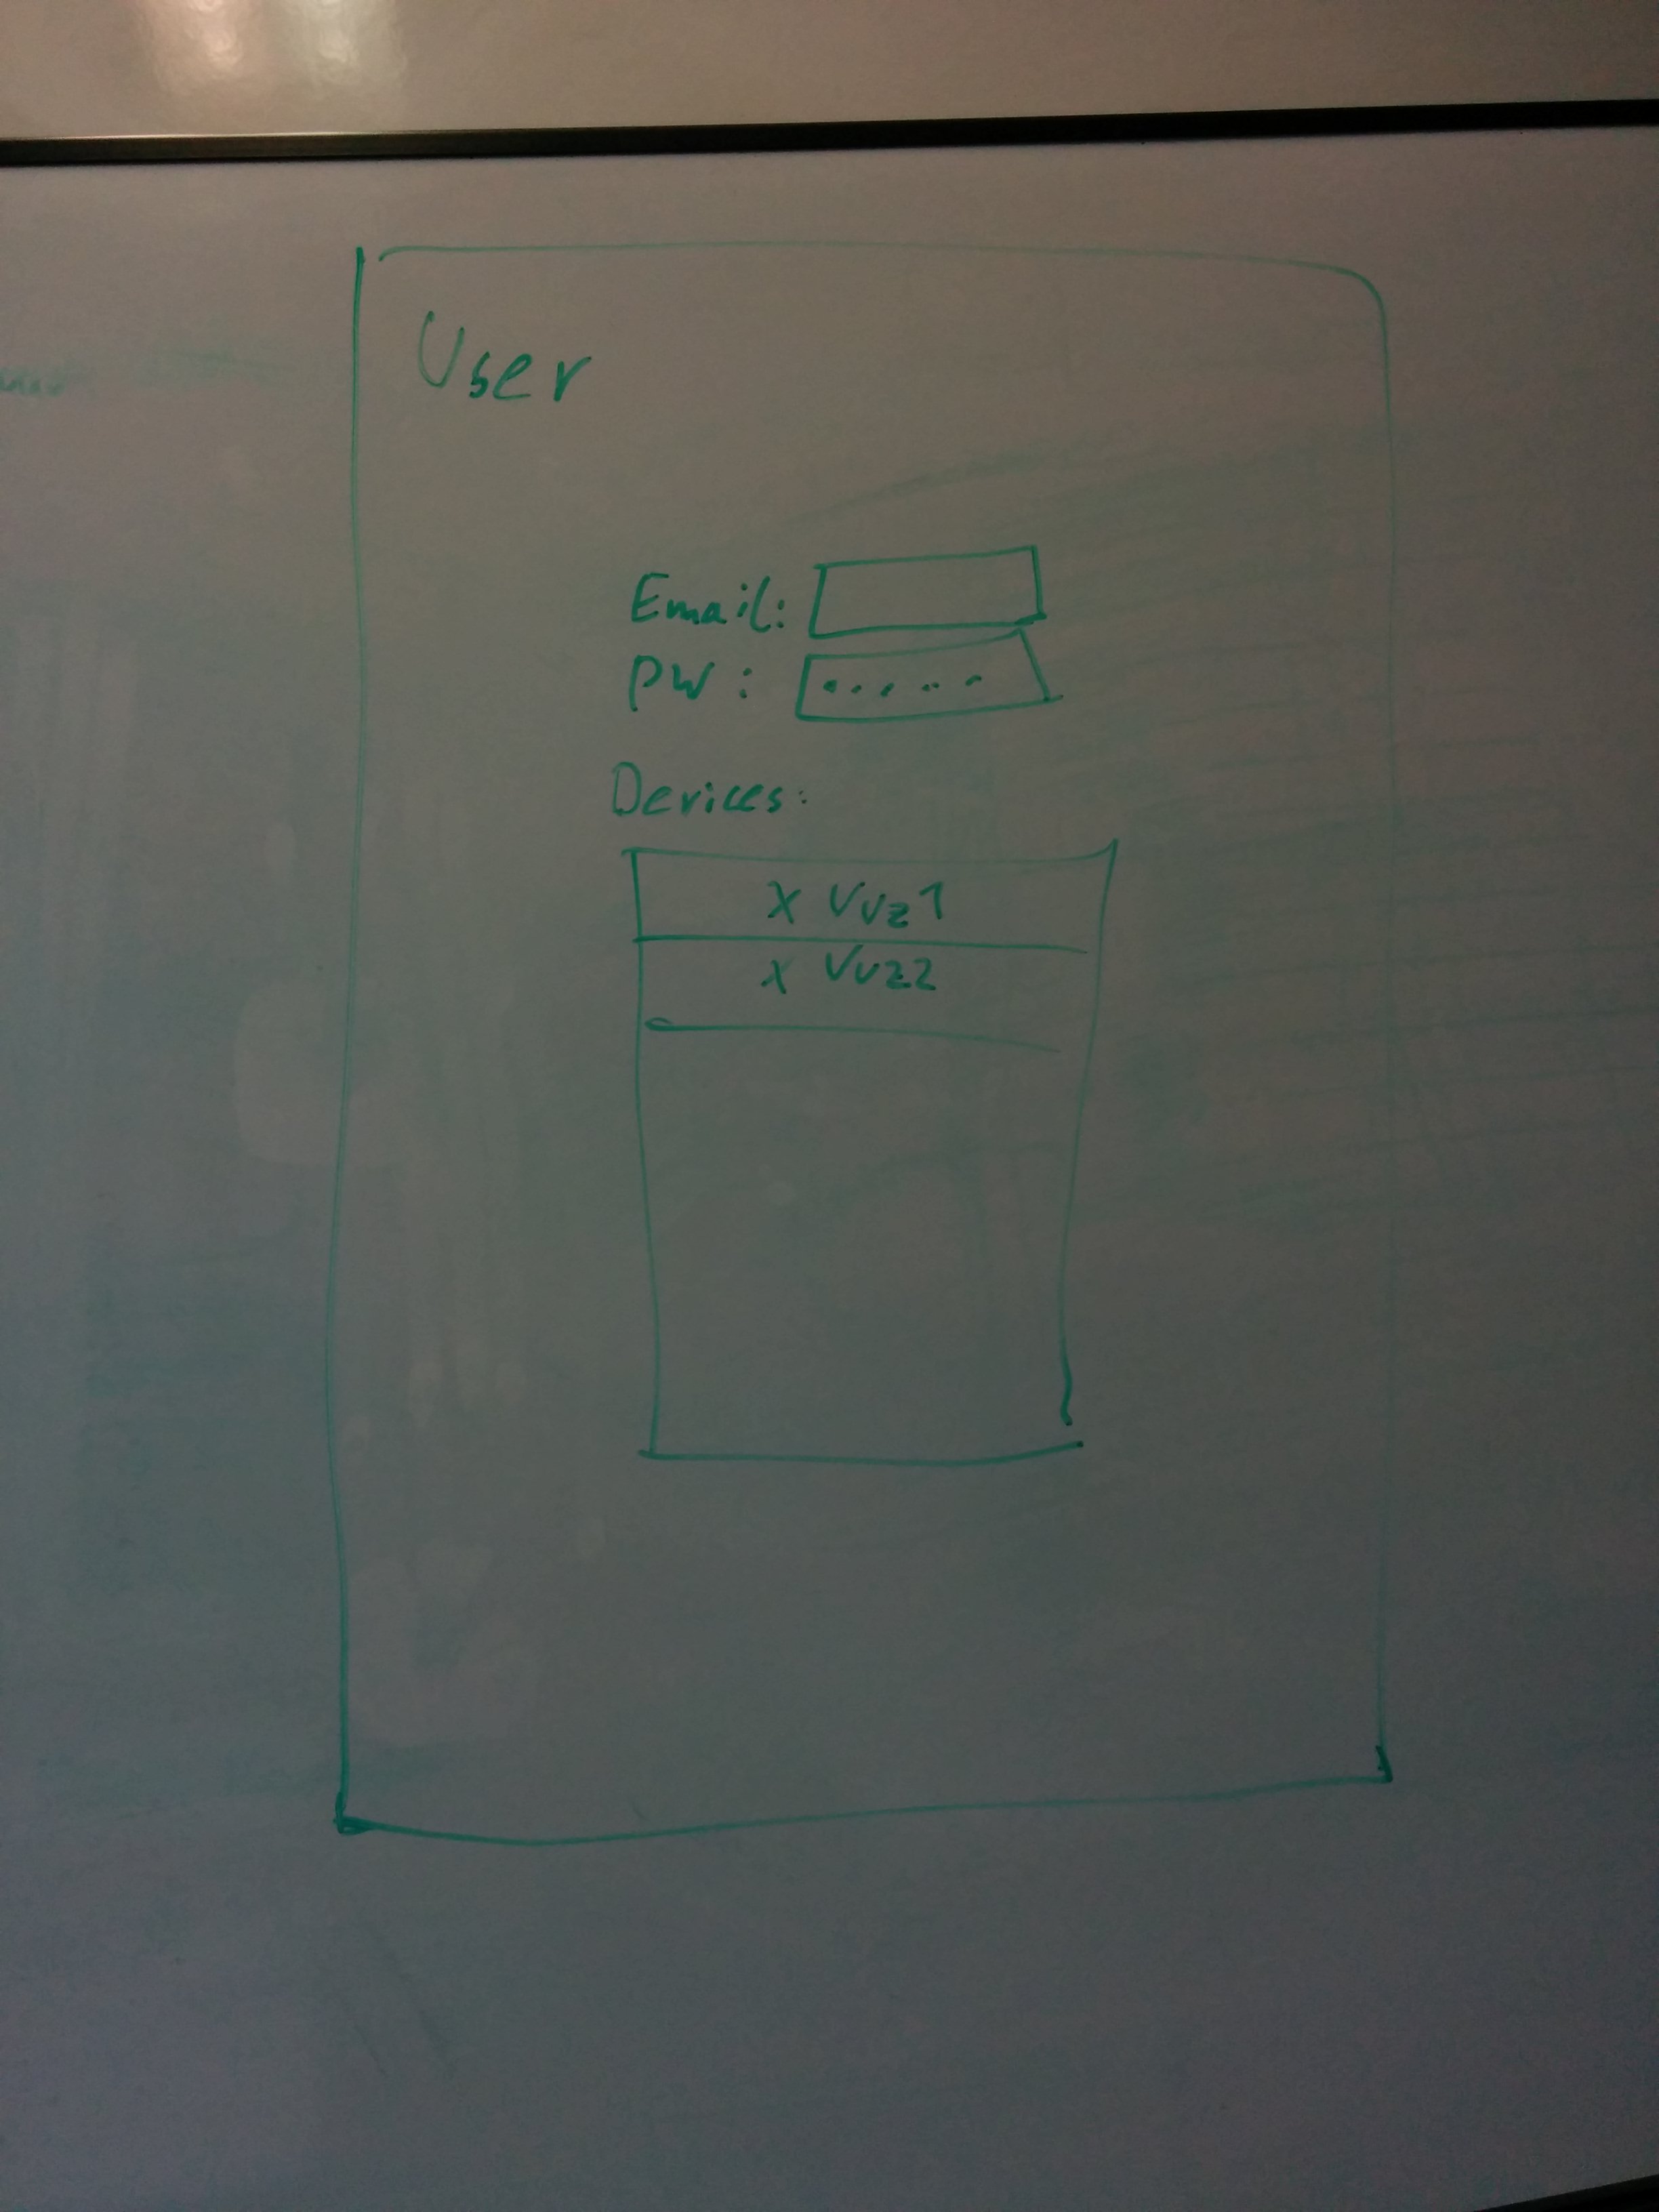 User
Email:
PW: .....
Devices:
x Vuz1
x Vuz2